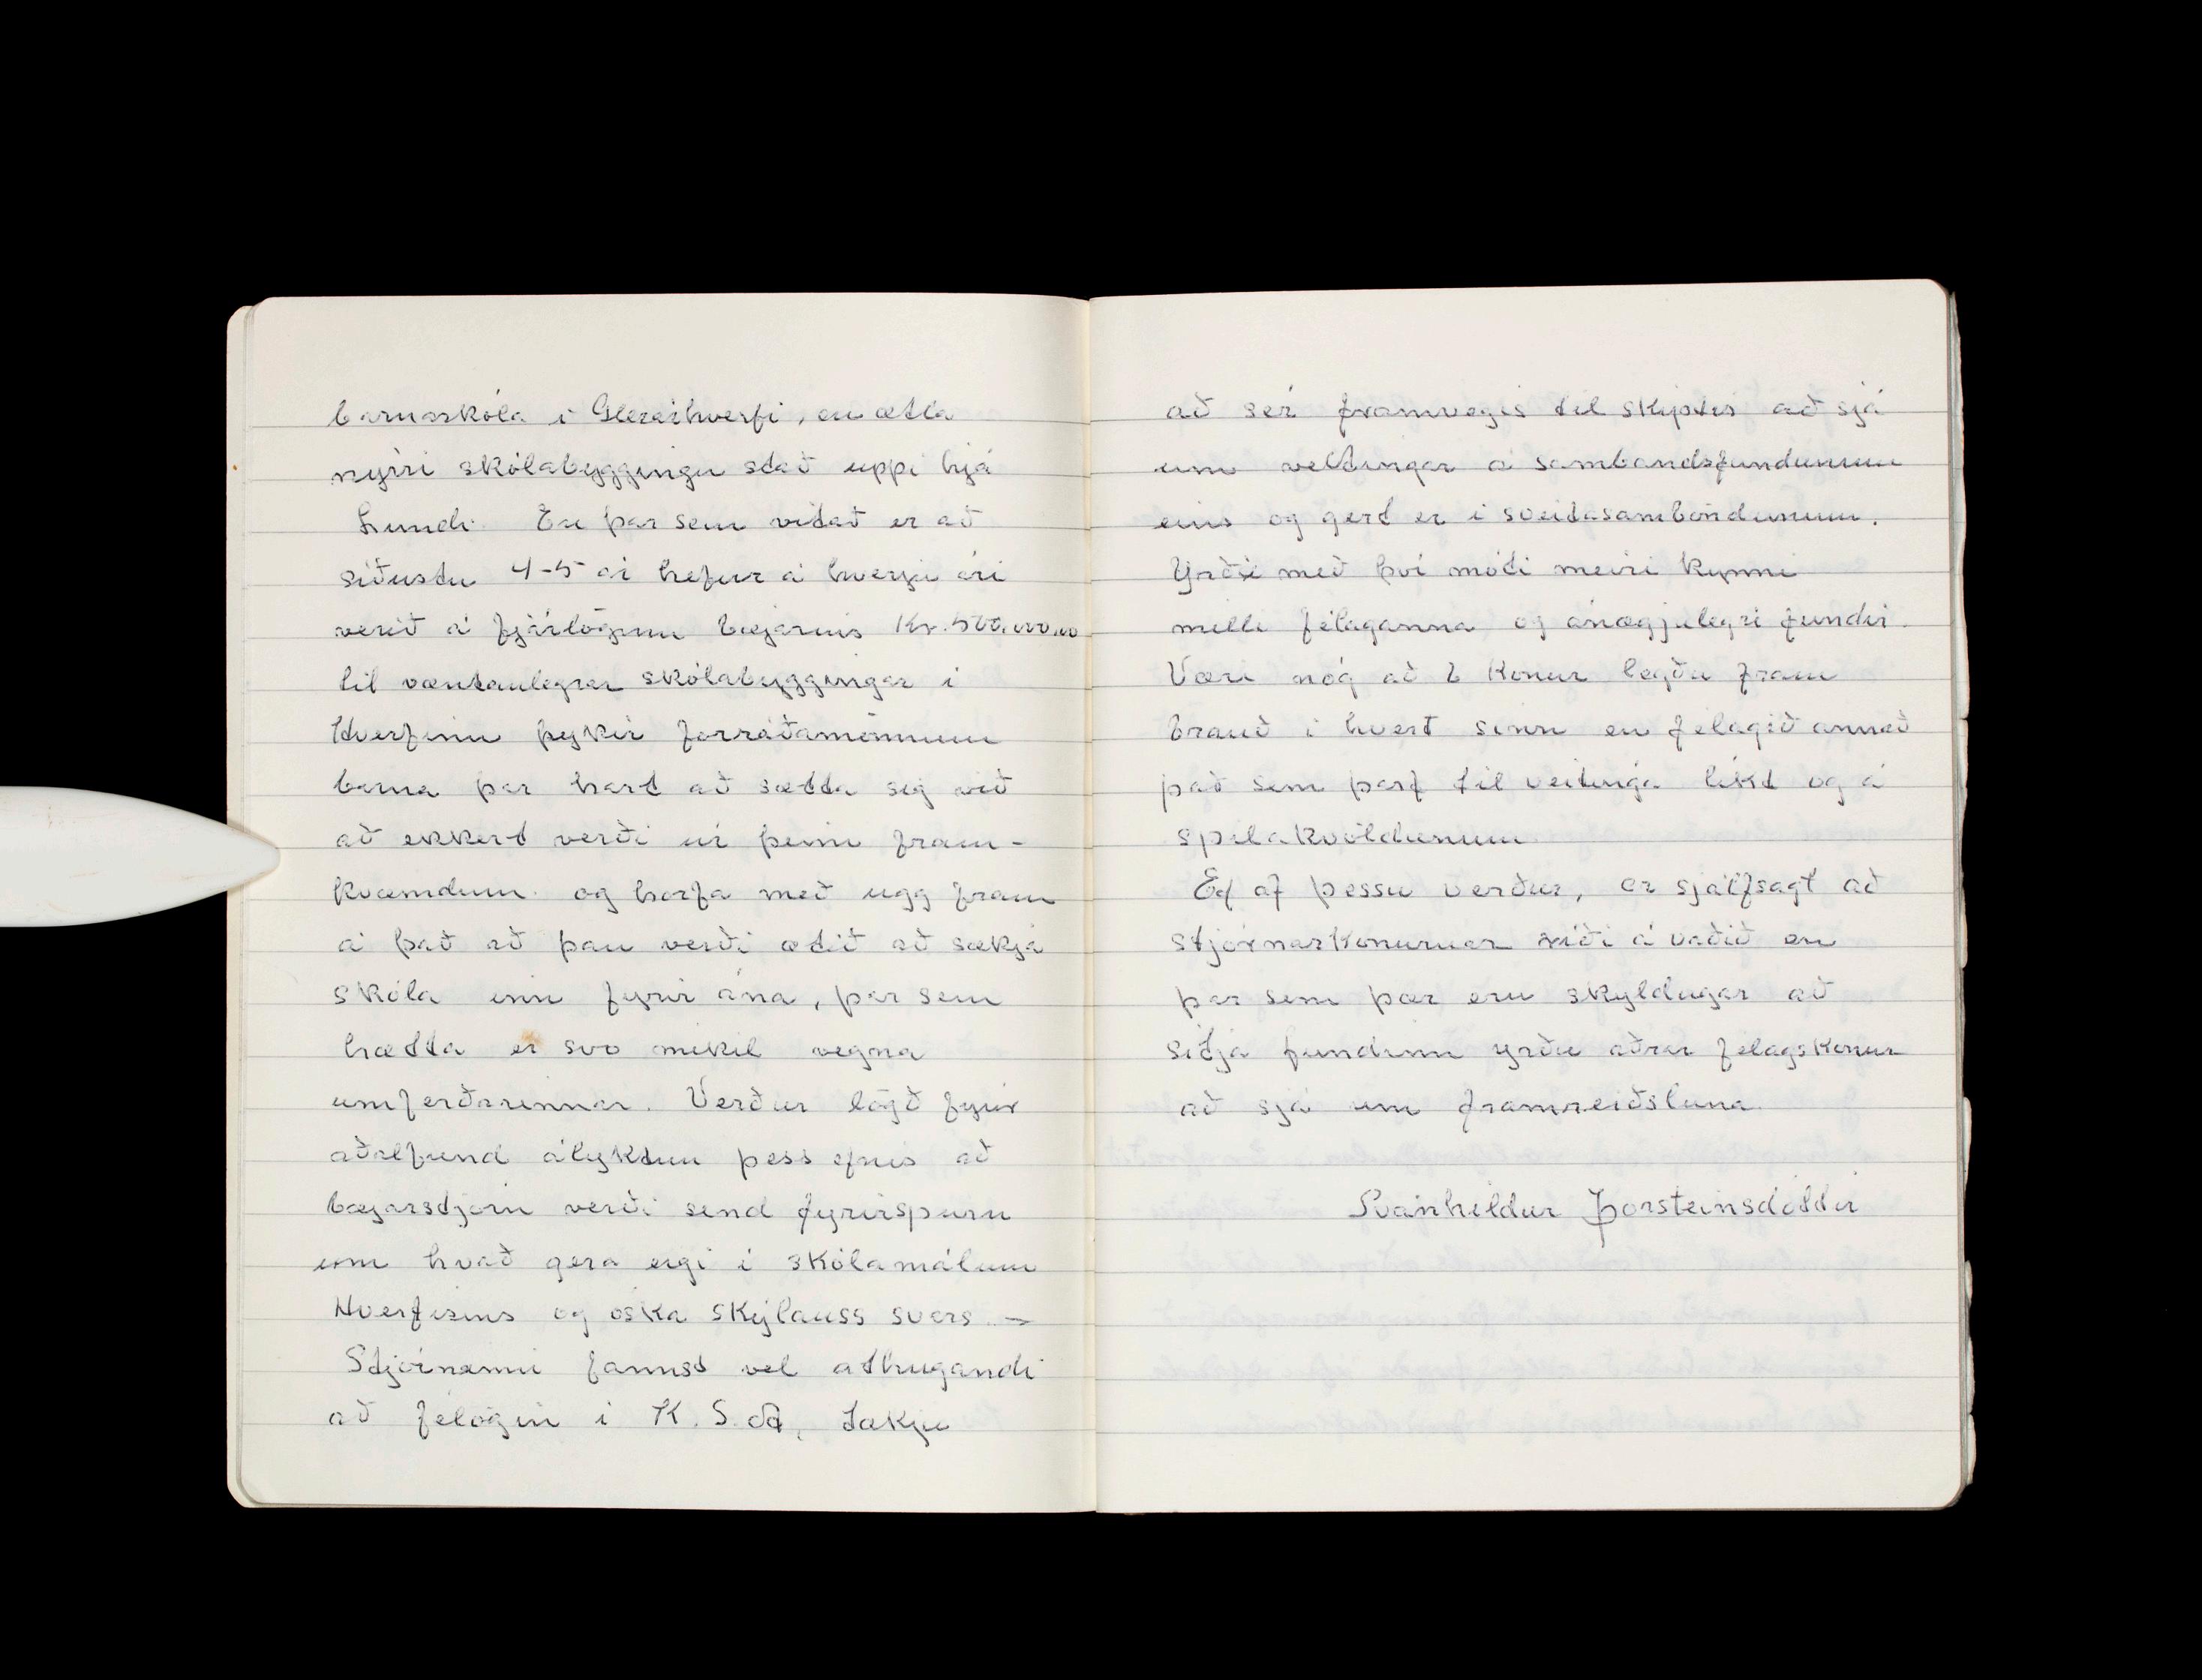 barnaskóla í Glerárhverfi, en ætla
nýrri skólabyggingu stað uppi hjá
Lundi. En þar sem vitað er að
síðustu 4-5 ár hefur á hverju ári
verið á fjárlögum bæjarins Kr. 500.000.00
til væntanlegrar skólabyggingar í
Hverfinu þykir forráðamönnum
barna þar hart að sætta sig við
að ekkert verði úr þeim fram-
kvæmdum og horfa með ugg fram
á það að þau verði ætíð að sækja
skóla inn fyrir ána, þar sem
hætta er svo mikil vegna
umferðarinnar. Verður lögð fyrir
aðalfund ályktun þess efnis að
bæjarstjórn verði send fyrirspurn
um hvað gera eigi í skólamálum
Hverfisins og óska skýlauss svars. –
Stjórninni fannst vel athugandi
að félögin í K.S.A. tækju
að sér framvegis til skiptis að sjá
um veitingar á sambandsfundunum
eins og gert er í sveitasamböndunum.
Yrði með því móti meiri kynni
milli félaganna og ánægjulegri fundir.
Væri nóg að 6 konur legðu fram
brauð í hvert sinn en félagið annað
það sem þarf til veitinga líkt og á
spilakvöldunum
Ef af þessu verður, er sjálfsagt að
stjórnarkonurnar ríði á vaðið en
þar sem þær eru skyldugar að
sitja fundinn yrðu aðrar félagskonur
að sjá um framreiðsluna.
Svanhildur Þorsteinsdóttir